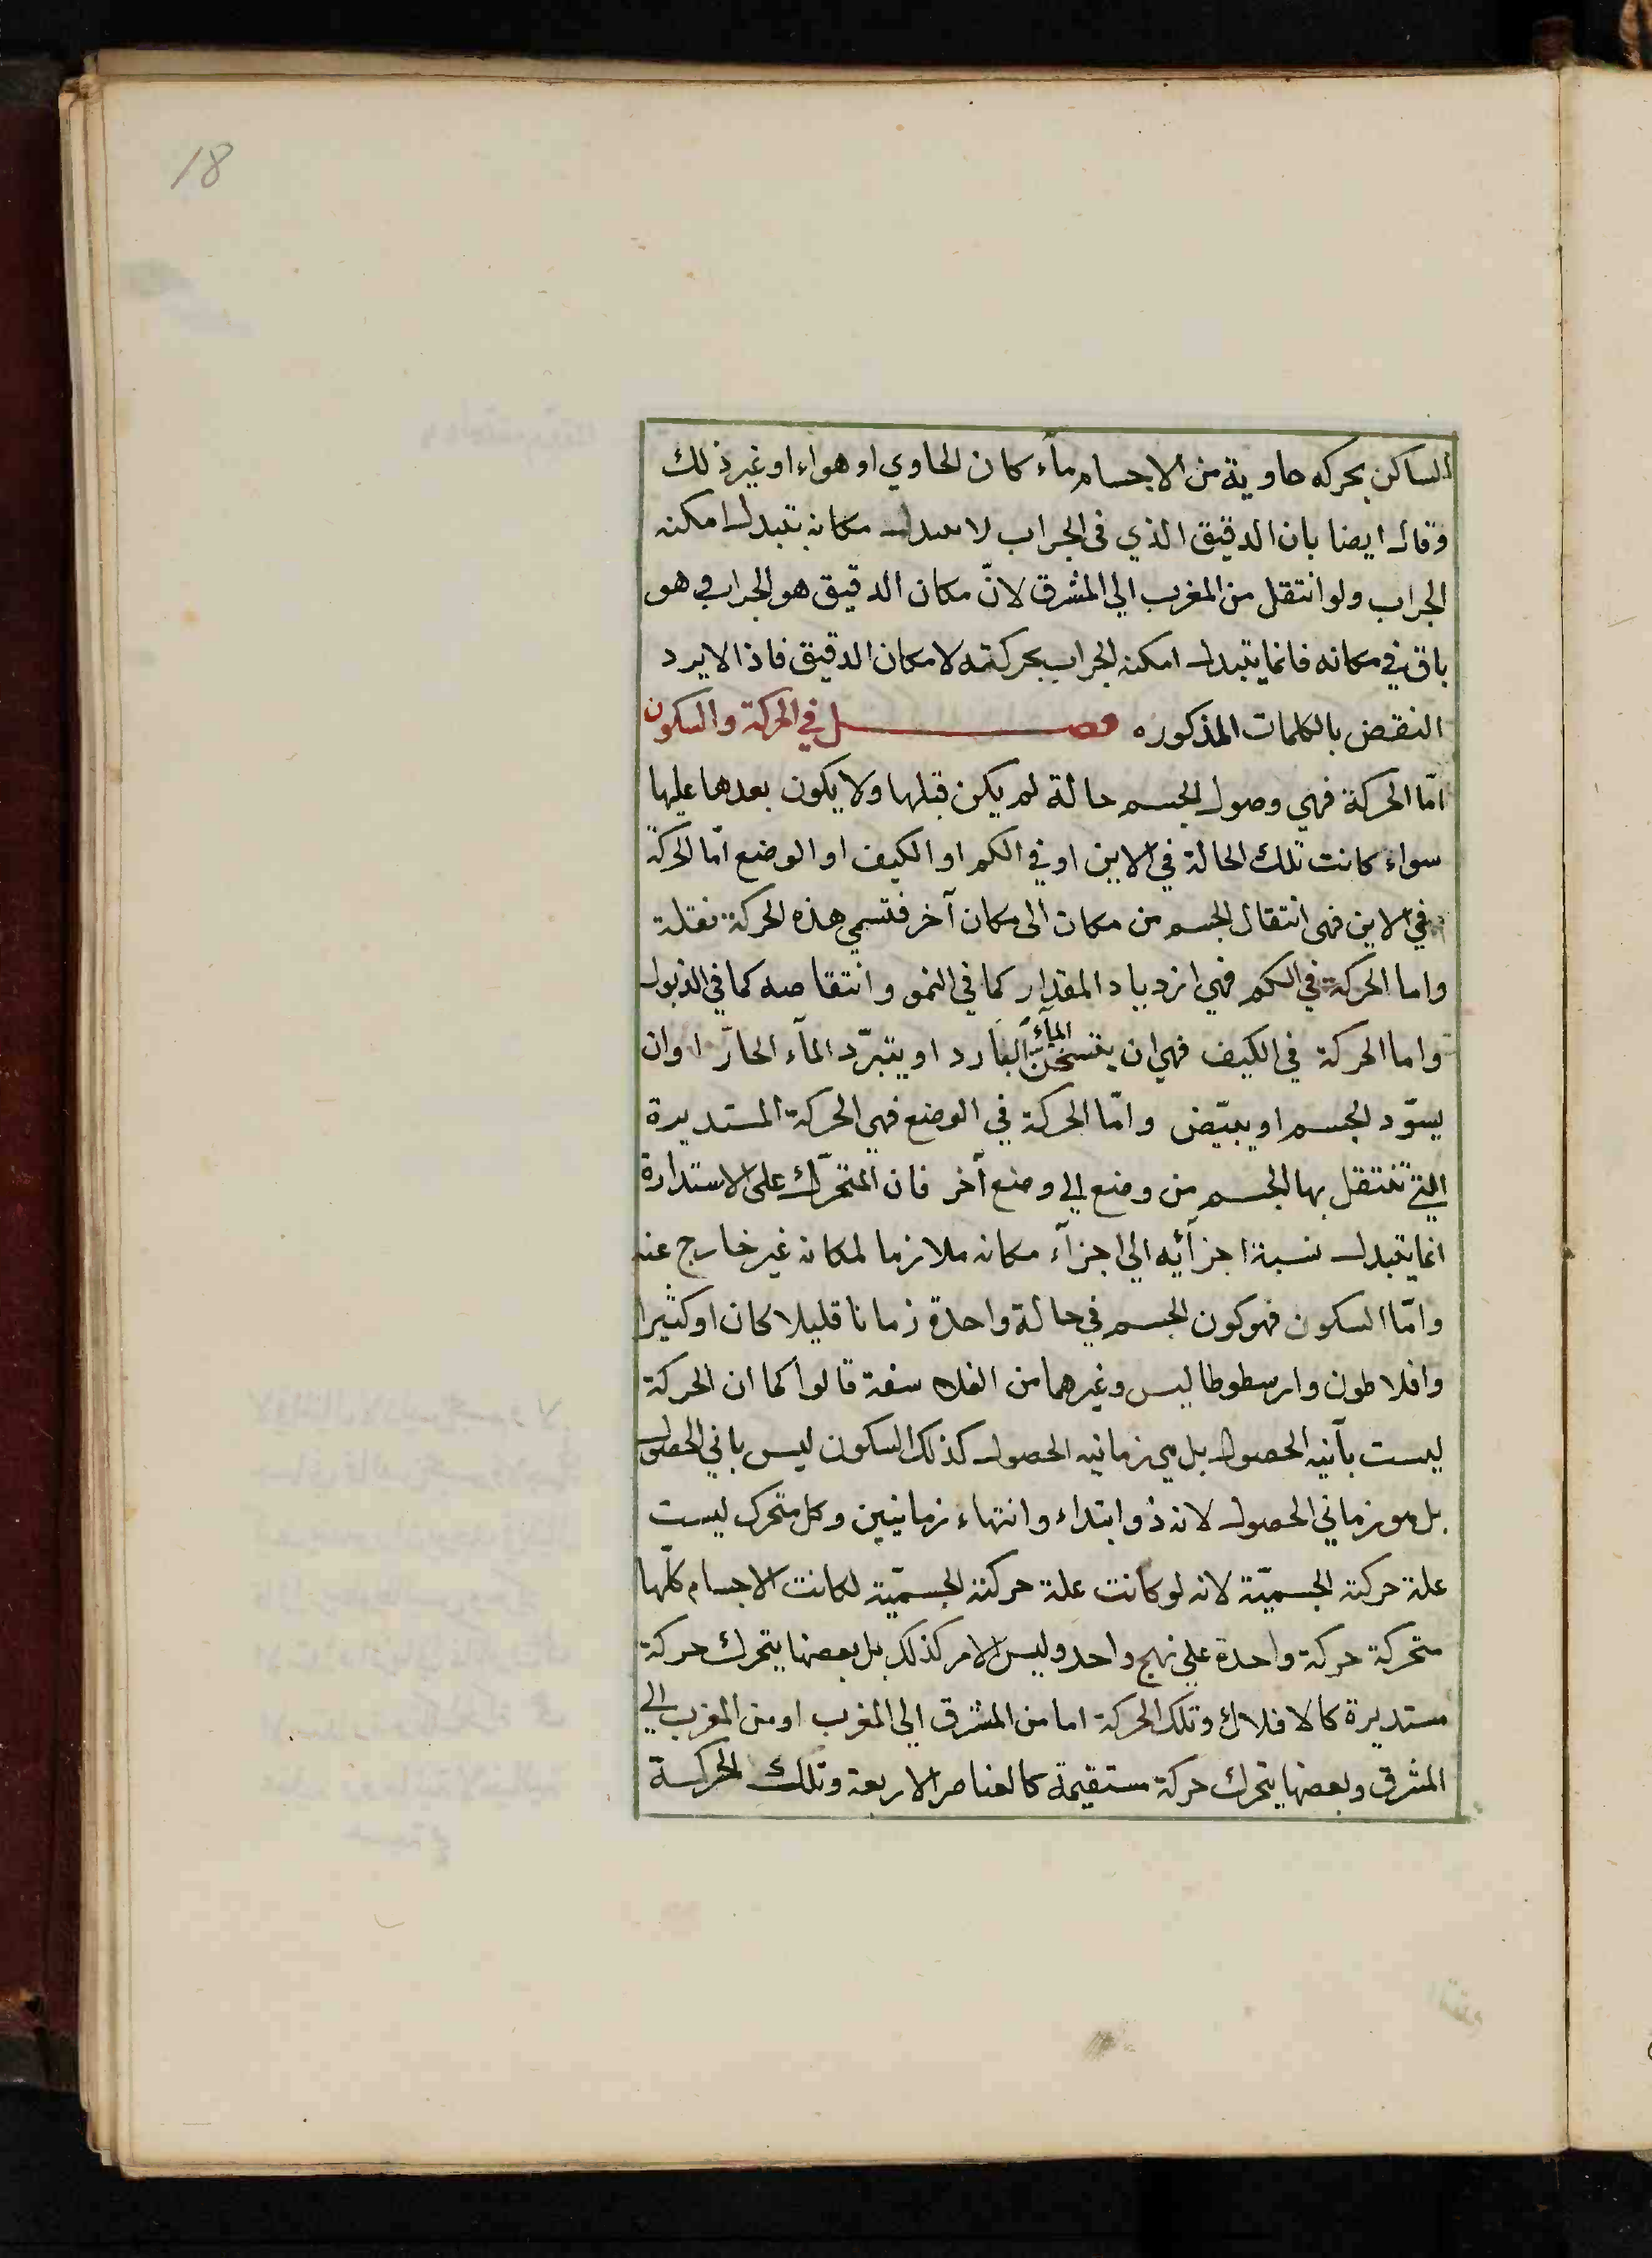 18
الساكن بحركه حاوية من الاجسام مآء كان الحاوي او هواء او غير ذلك
وقال ايضا بان الدقيق الذي فى الجراب لا يتبدل مكانه بتبدل امكنه
الجراب ولو انتقل من المغرب الي المشرق لانّ مكان الدقيق هو الجراب وهو
باق في مكانه فانما يتبدل امكنه الجراب بحركته لا مكان الدقيق فاذا لا يرد
النقض بالكلمات المذكوره فصل في الحركة والسكون
امّا الحركة فهي وصول الجسم حالة لم يكن قبلها ولا يكون بعدها عليها
سواء كانت تلك الحالة في الاين او في الكم او الكيف او الوضع امّا الحركة
في الاين فهى انتقال الجسم من مكان الى مكان آخر فتسمي هذه الحركة نقلة
واما الحركة في الكم فهي ازدياد المقدار كما في النمو وانتقاصه كما في الذبول
واما الحركة في الكيف فهي ان يتسخّن المآء البارد او يتبرّد المآء الحارّ او ان
يسوّد الجسم او يبيّض وامّا الحركة في الوضع فهي الحركة المستديرة
التي تنتقل بها الجسم من وضع الي وضع آخر فان المتحرّك على الاستدارة
انما يتبدل نسبة اجزآئه الي اجزآء مكانه ملازما لمكانه غير خارج عنه
وامّا السكون فهو كون الجسم في حالة واحدة زمانا قليلا كان او كثيرا
وافلاطون وارسطوطاليس وغيرهما من الفلاسفة قالوا كما ان الحركة
ليست بآنيه الحصول بل هي زمانيه الحصول كذلك السكون ليس باني الحصول
بل هو زماني الحصول لانه ذو ابتداء وانتهاء زمانيين وكل متحرك ليست
علة حركته الجسميّة لانه لو كانت علة حركته الجسميّة لكانت الاجسام كلّها
متحركة حركة واحدة علي نهج واحد وليس الامر كذلك بل بعضها يتحرك حركة
مستديرة كالافلاك وتلك الحركة اما من المشرق الى المغرب او من المغرب الي
المشرق وبعضها يتحرك حركة مستقيمة كالعناصر الاربعة وتلك الحركة